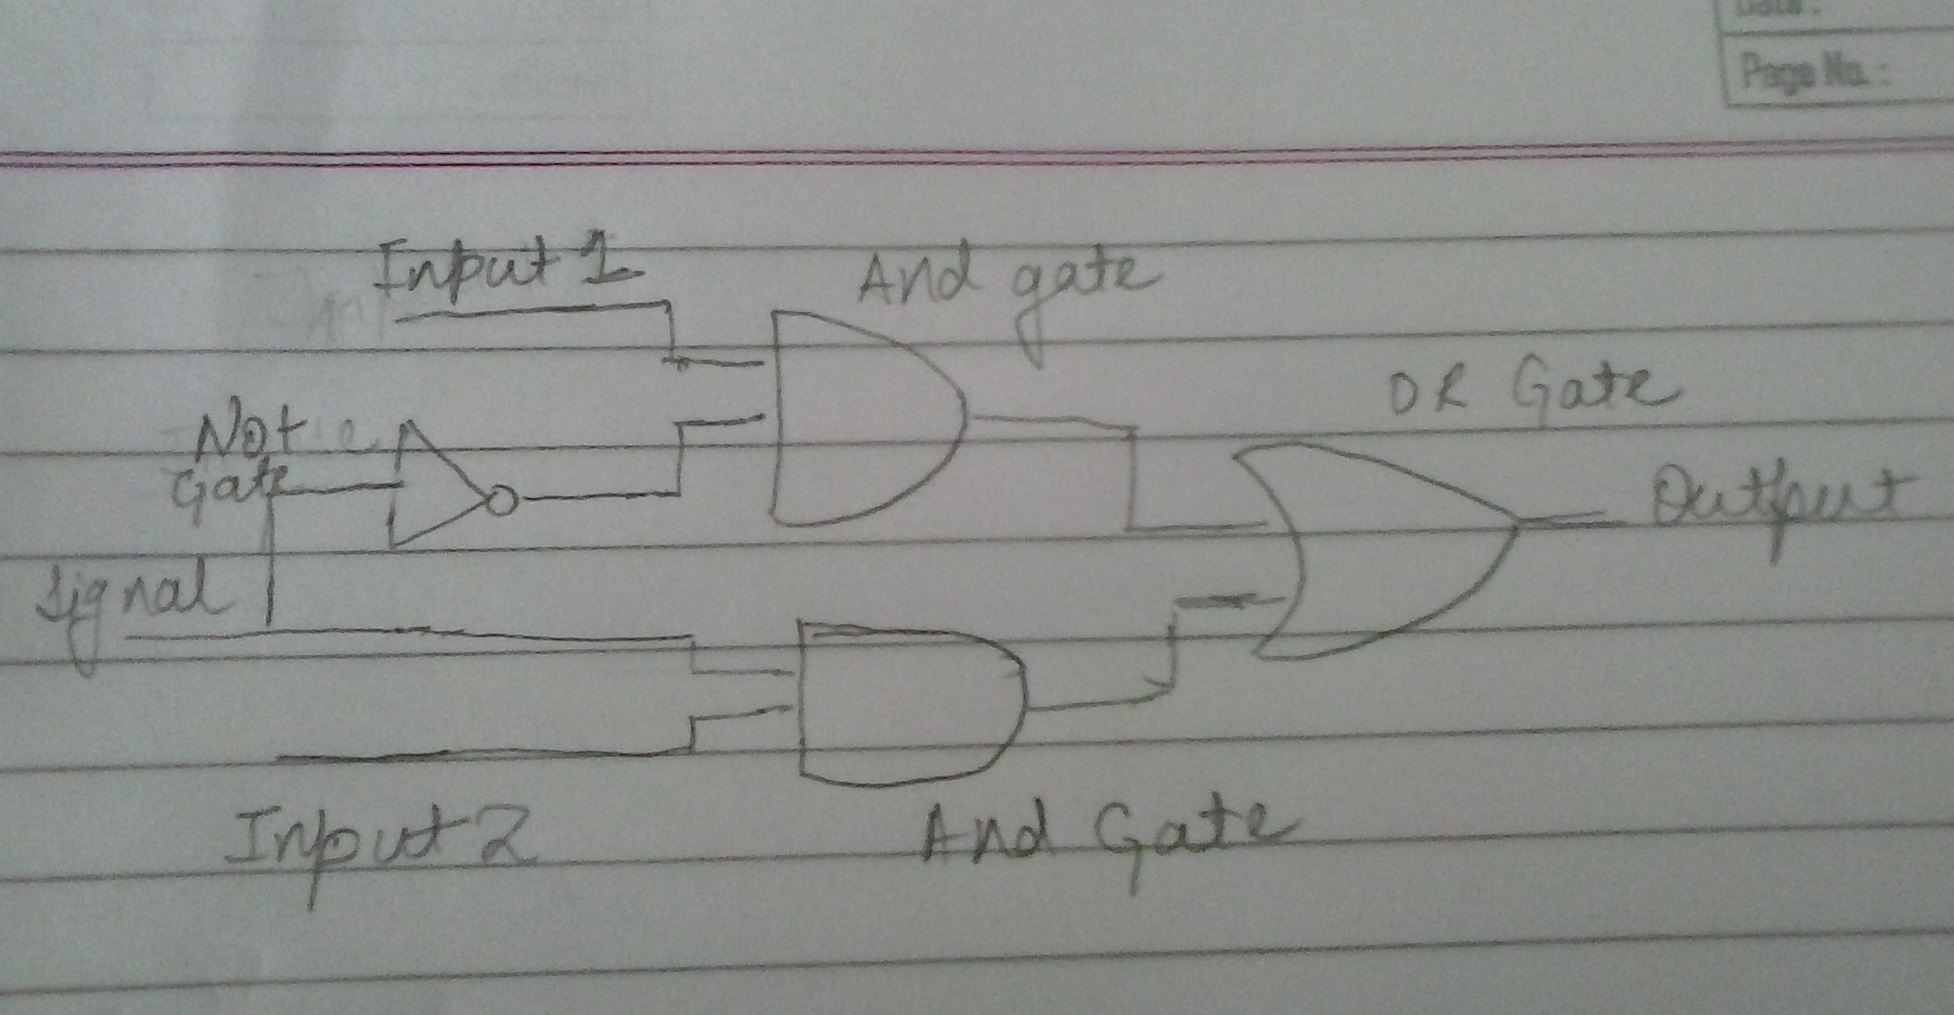 Date:
Page No.:
Input 1
And gate
OR Gate
Not
Gate
Output
Signal
Input 2
And Gate